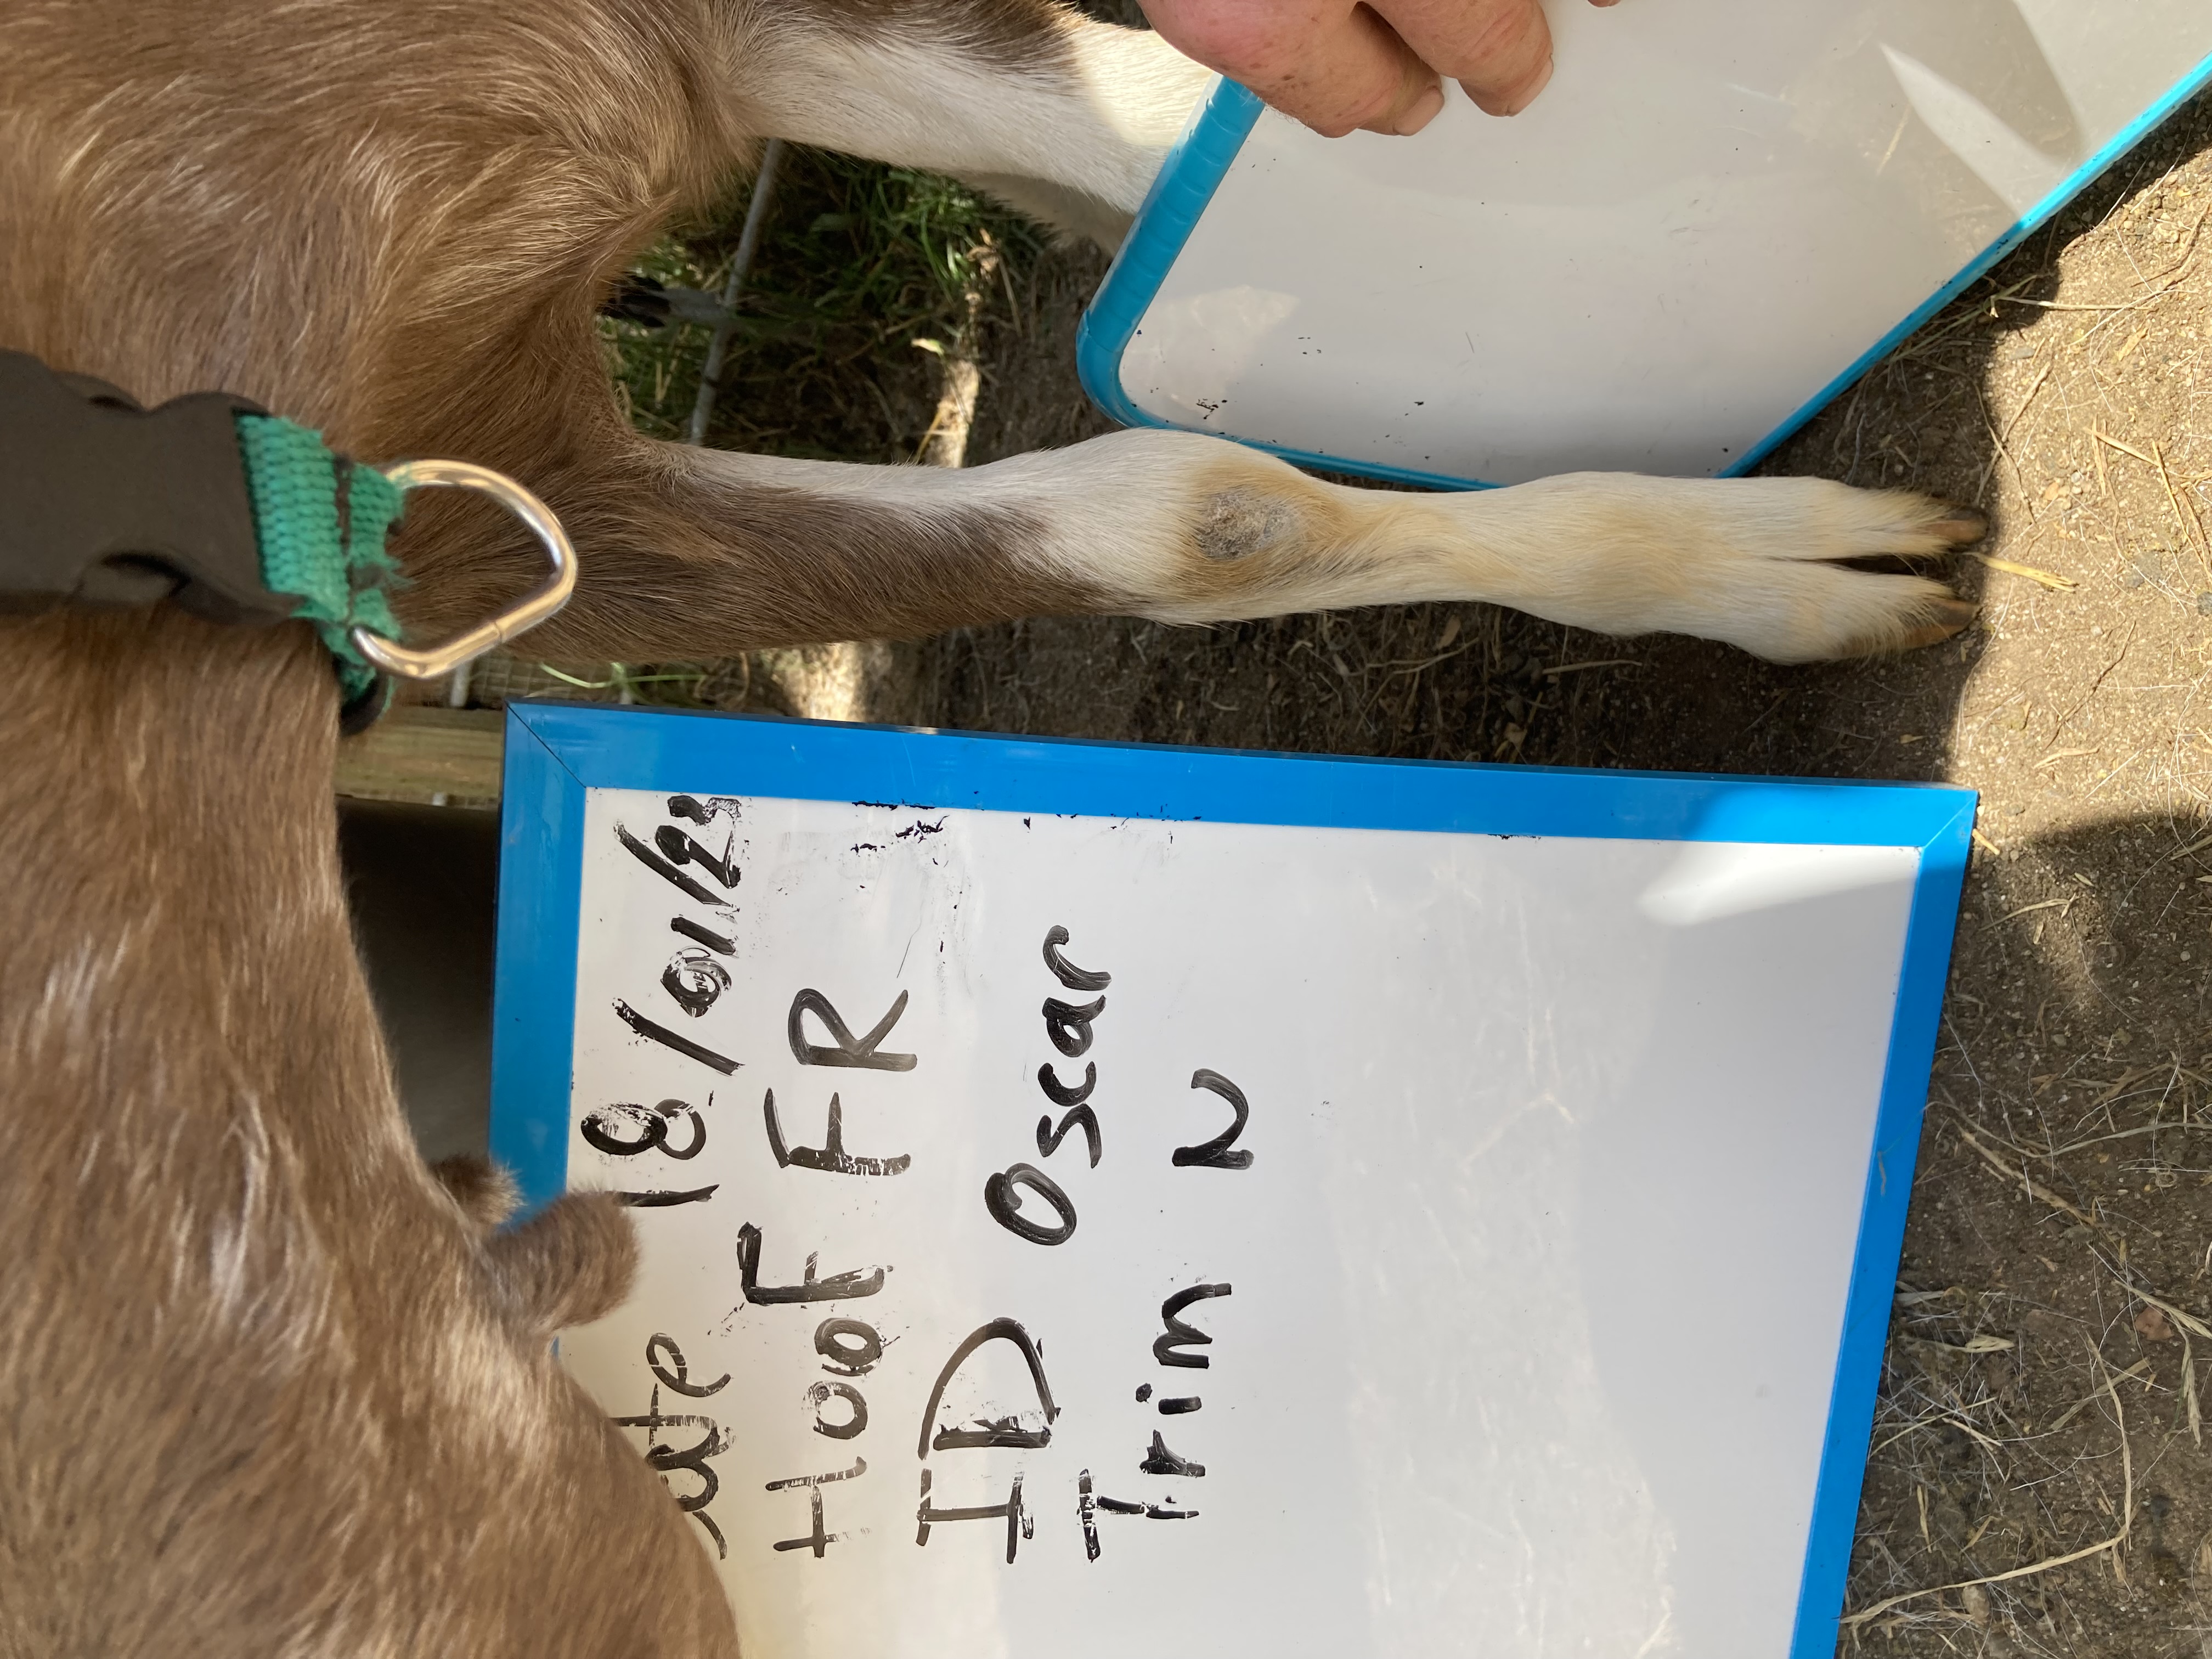 ate 18/01/23
HooF FR
ID Oscar
Trim N